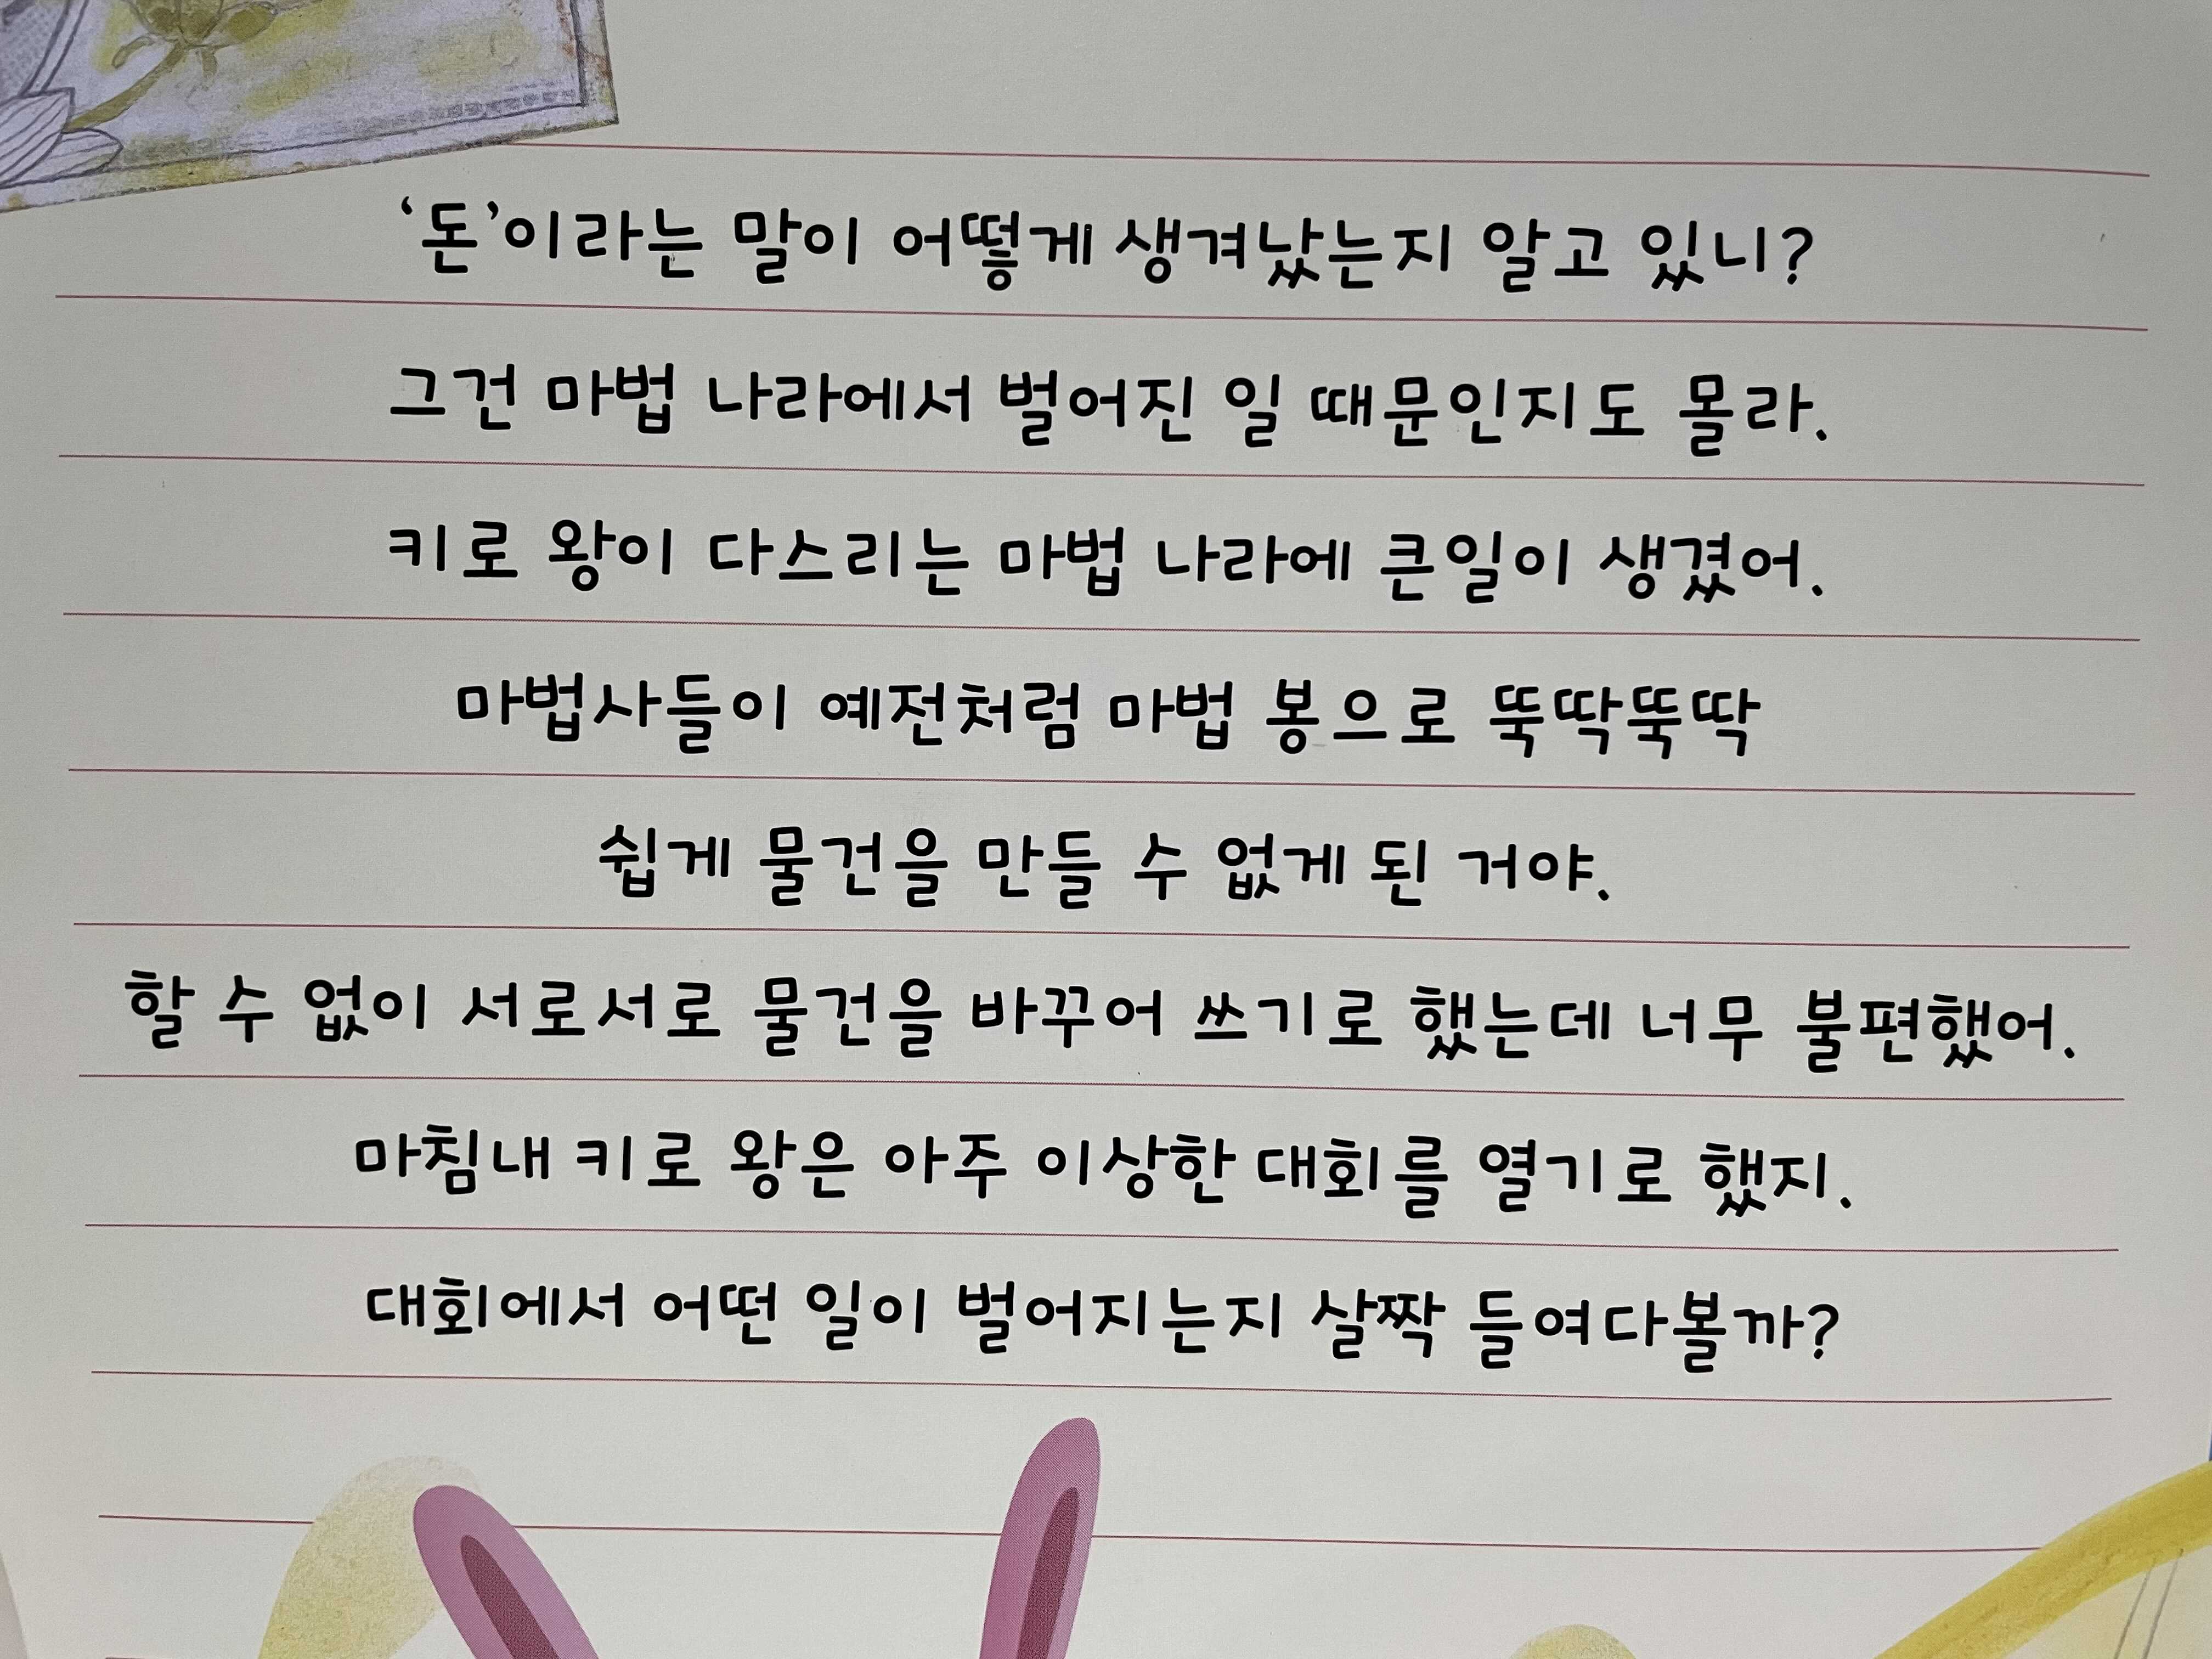 ‘돈’이라는 말이 어떻게 생겨났는지 알고 있니?
그건 마법 나라에서 벌어진 일 때문인지도 몰라.
키로 왕이 다스리는 마법 나라에 큰일이 생겼어.
마법사들이 예전처럼 마법 봉으로 뚝딱뚝딱
쉽게 물건을 만들 수 없게 된 거야.
할 수 없이 서로서로 물건을 바꾸어 쓰기로 했는데 너무 불편했어.
마침내 키로 왕은 아주 이상한 대회를 열기로 했지.
대회에서 어떤 일이 벌어지는지 살짝 들여다볼까?